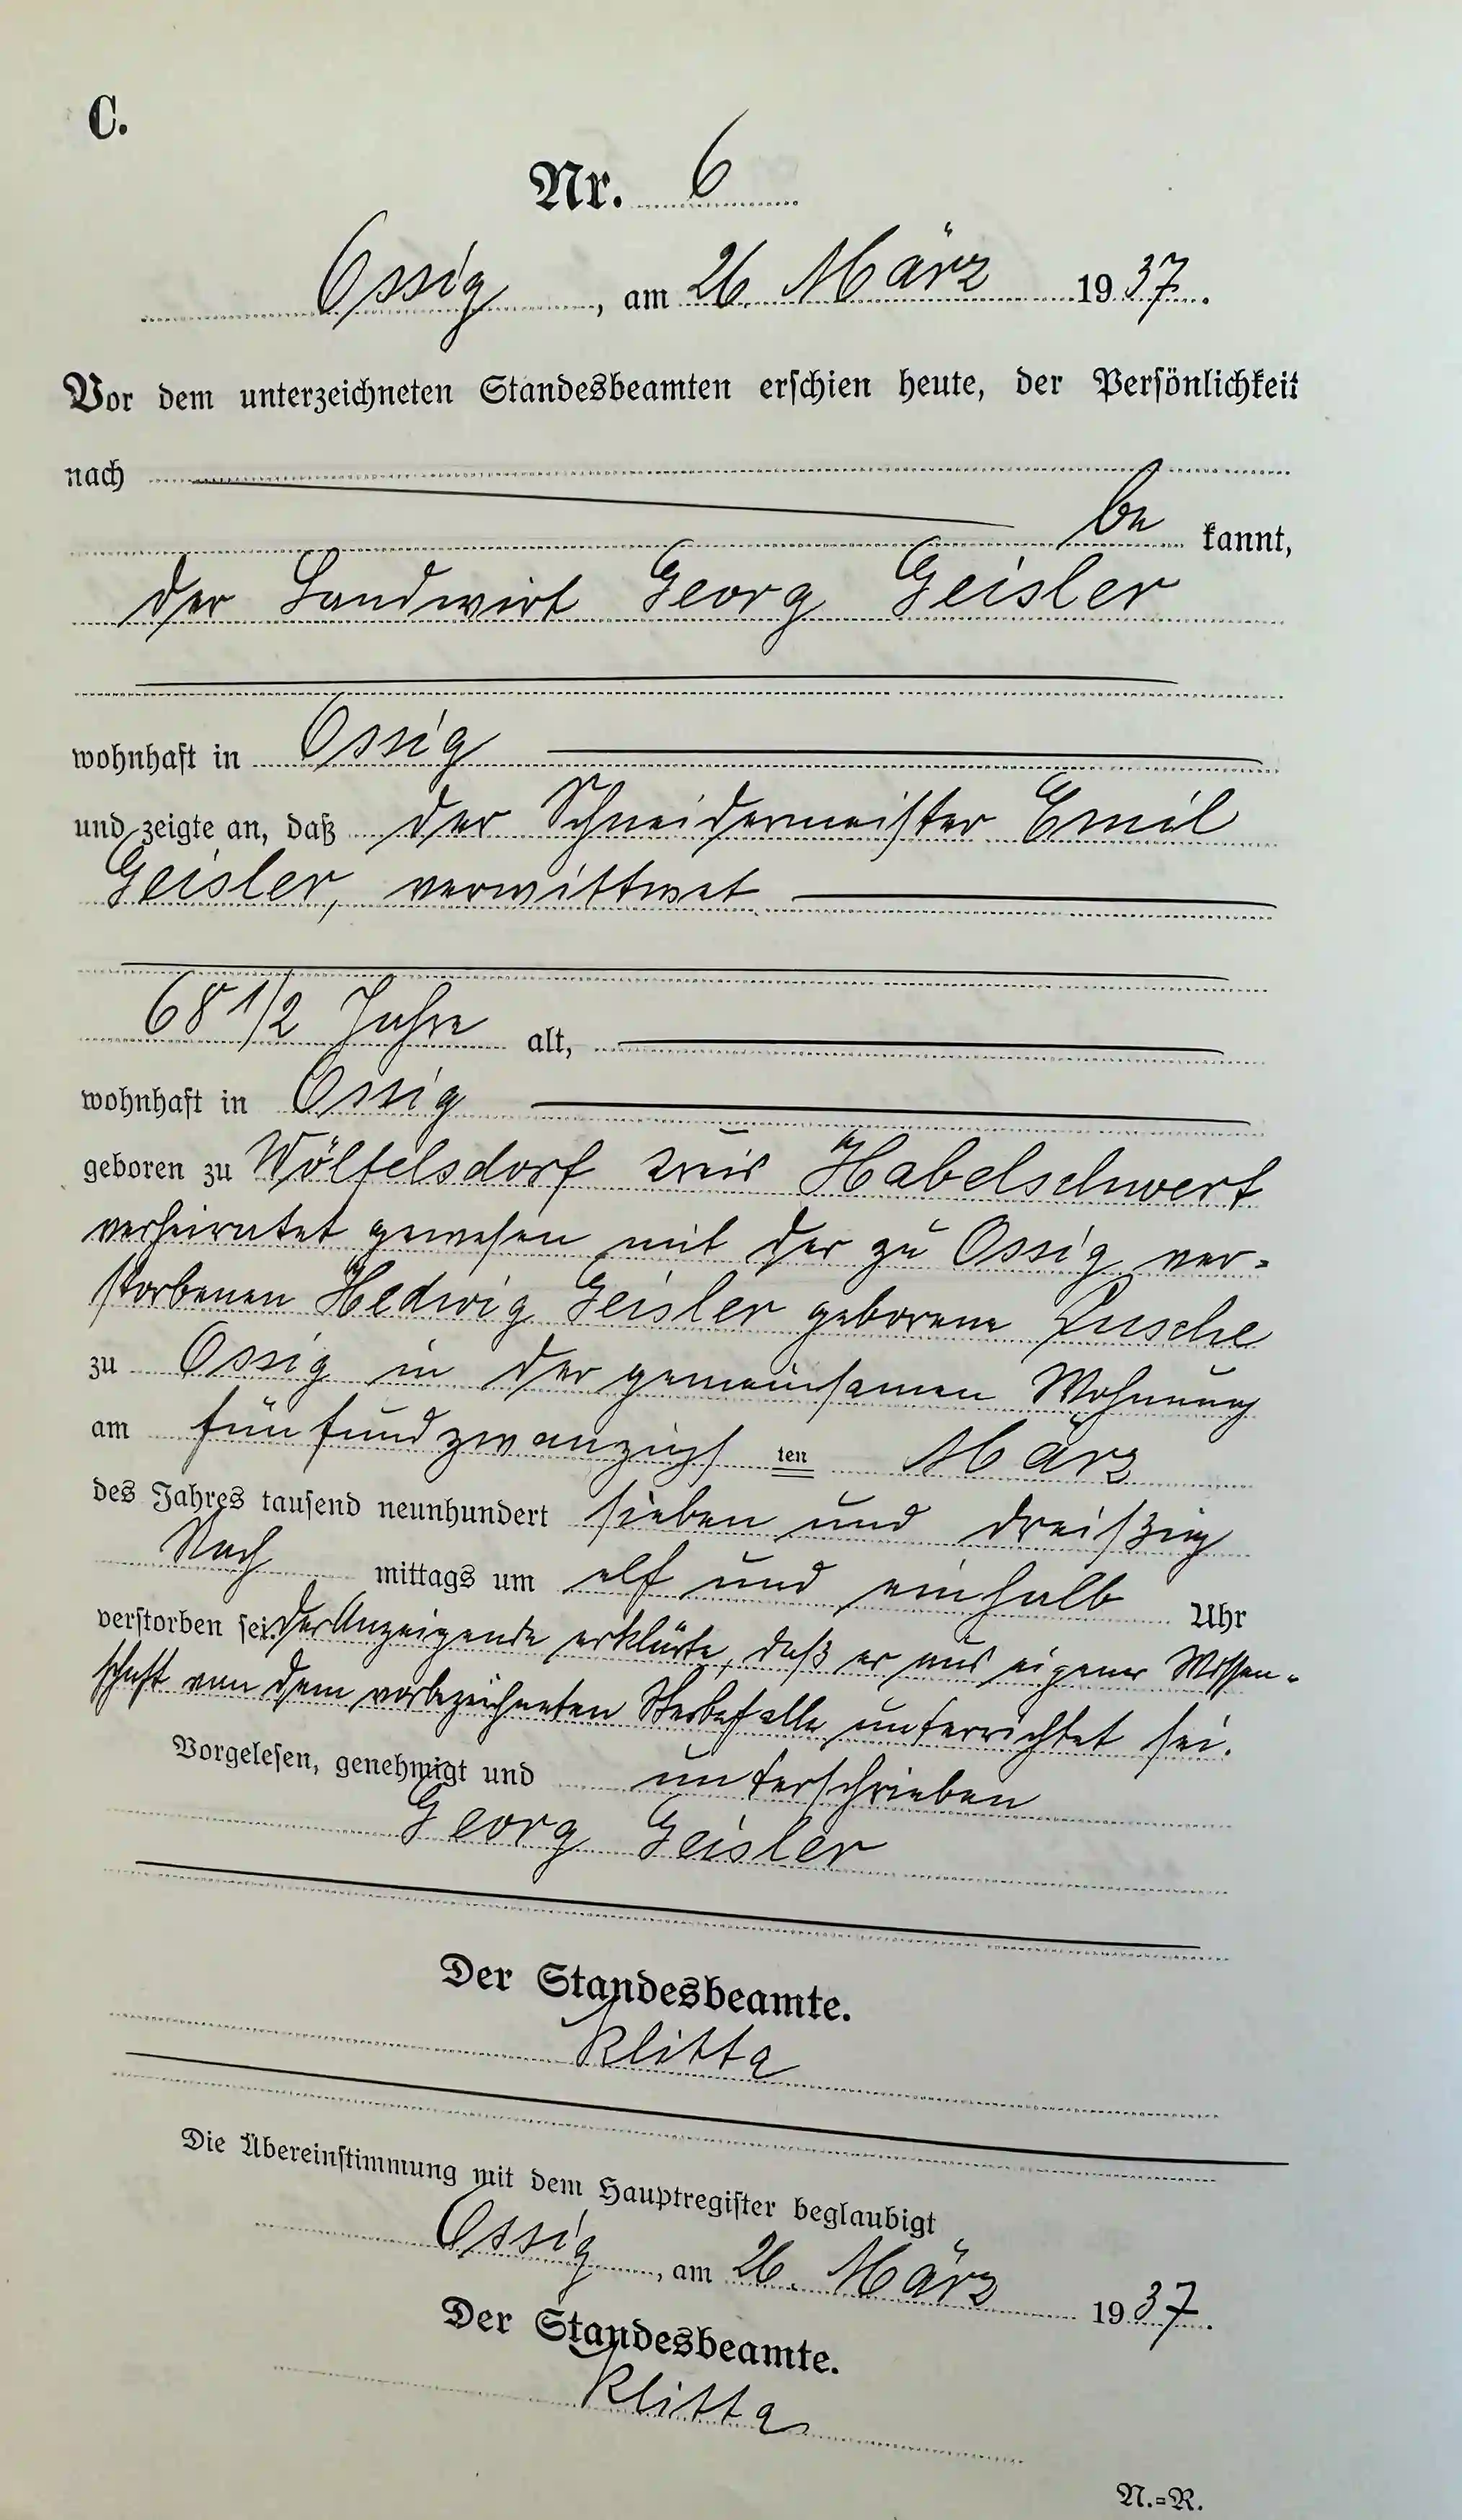 C.
Nr. 6
Ossig, am 26. März 1937.
Vor dem unterzeichneten Standesbeamten erschien heute, der Persönlichkeit
nach
be kannt,
der Landwirt Georg Geisler
wohnhaft in Ossig
und zeigte an, daß der Schneidermeister Emil
Geisler, verwittwet
68 1/2 Jahre alt,
wohnhaft in Ossig
geboren zu Wölfelsdorf Kreis Habelschwert
verheiratet gewesen mit der zu Ossig ver-
storbenen Hedwig Geisler geborene
zu Ossig in der gemeinsamen Wohnung
am fünfundzwanzigsten März
des Jahres tausend neunhundert sieben und dreißig
Nach mittags um elf und einhalb Uhr
verstorben sei. Der Anzeigende erklärte, daß er aus eigener Wissen-
schaft von dem vorbezeichneten Sterbefalle unterrichtet sei.
Vorgelesen, genehmigt und unterschrieben
Georg Geisler
Der Standesbeamte.
Klitta
Die Übereinstimmung mit dem Hauptregister beglaubigt
Ossig, am 26. März 1937.
Der Standesbeamte.
Klitta
N.=R.